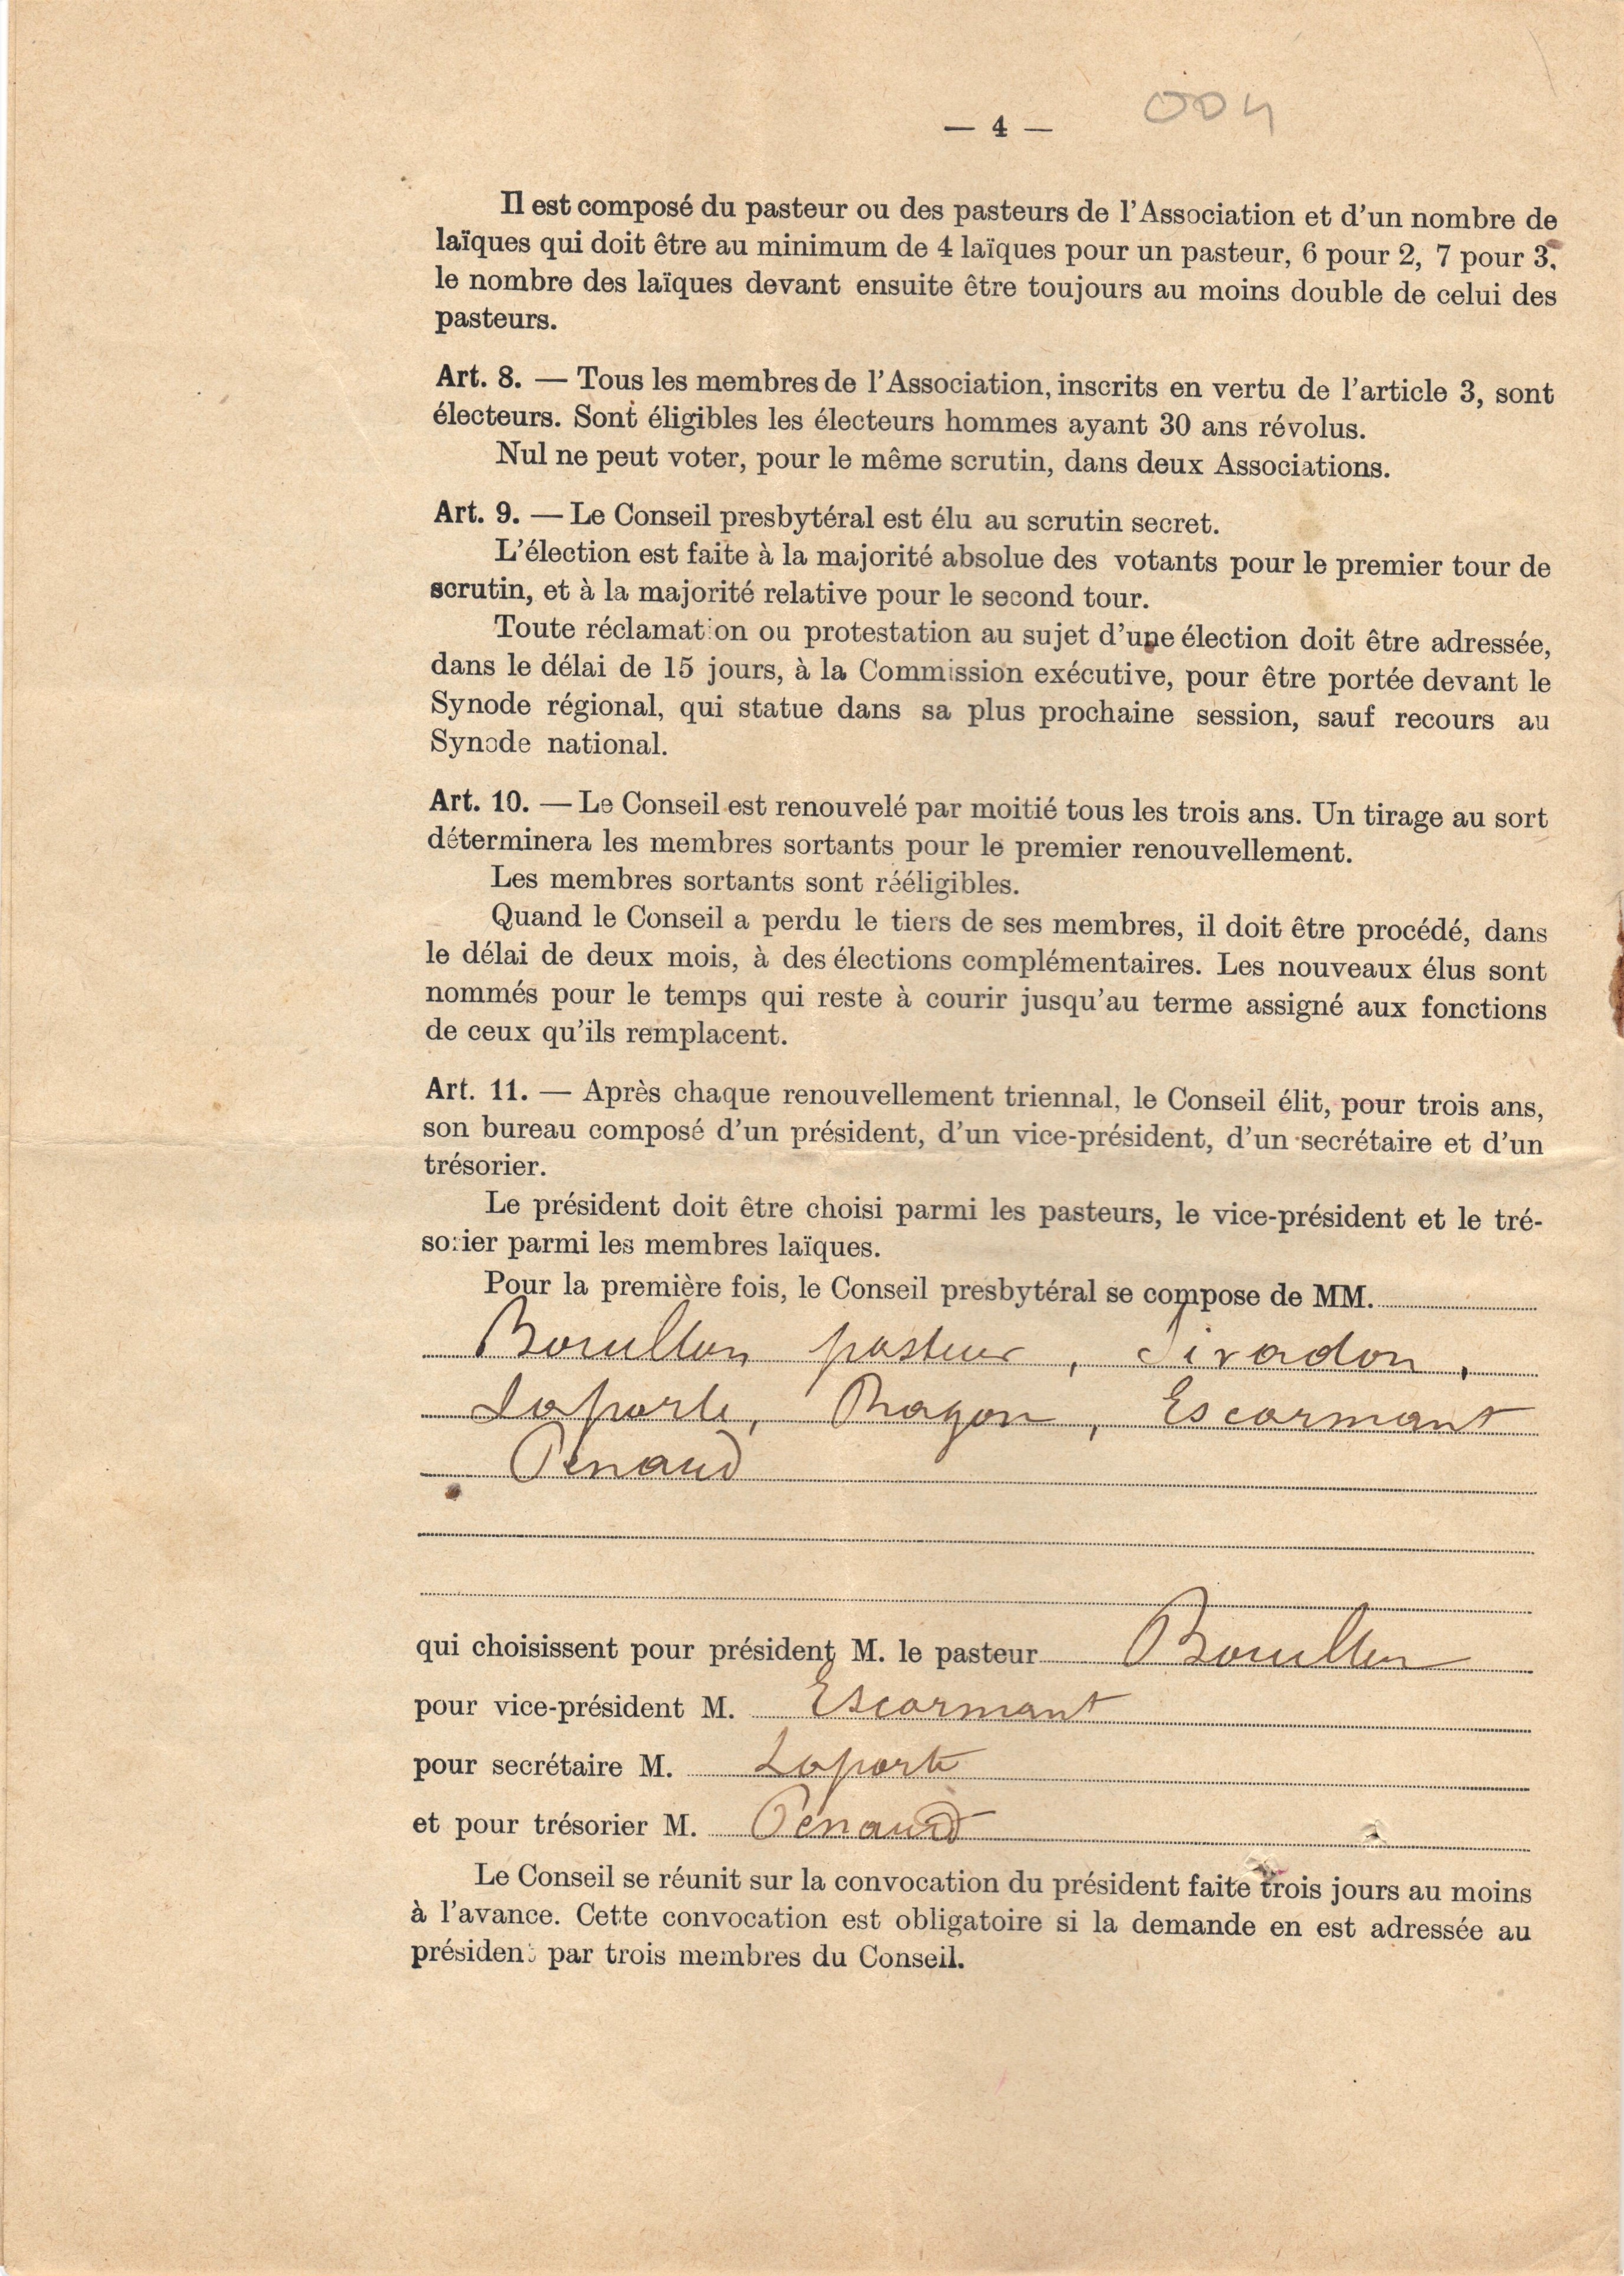 — 4 —
004
Il est composé du pasteur ou des pasteurs de l'Association et d'un nombre de
laïques qui doit être au minimum de 4 laïques pour un pasteur, 6 pour 2, 7 pour 3,
le nombre des laïques devant ensuite être toujours au moins double de celui des
pasteurs.
Art. 8. — Tous les membres de l'Association, inscrits en vertu de l'article 3, sont
électeurs. Sont éligibles les électeurs hommes ayant 30 ans révolus.
Nul ne peut voter, pour le même scrutin, dans deux Associations.
Art. 9. — Le Conseil presbytéral est élu au scrutin secret.
L'élection est faite à la majorité absolue des votants pour le premier tour de
scrutin, et à la majorité relative pour le second tour.
Toute réclamation ou protestation au sujet d'une élection doit être adressée,
dans le délai de 15 jours, à la Commission exécutive, pour être portée devant le
Synode régional, qui statue dans sa plus prochaine session, sauf recours au
Synode national.
Art. 10. — Le Conseil est renouvelé par moitié tous les trois ans. Un tirage au sort
déterminera les membres sortants pour le premier renouvellement.
Les membres sortants sont rééligibles.
Quand le Conseil a perdu le tiers de ses membres, il doit être procédé, dans
le délai de deux mois, à des élections complémentaires. Les nouveaux élus sont
nommés pour le temps qui reste à courir jusqu'au terme assigné aux fonctions
de ceux qu'ils remplacent.
Art. 11. — Après chaque renouvellement triennal, le Conseil élit, pour trois ans,
son bureau composé d'un président, d'un vice-président, d'un secrétaire et d'un
trésorier.
Le président doit être choisi parmi les pasteurs, le vice-président et le tré-
sorier parmi les membres laïques.
Pour la première fois, le Conseil presbytéral se compose de MM.
pasteur, Sivadon,
Laporte, Ragon, Escarmant
Penaud
qui choisissent pour président M. le pasteur
pour vice-président M. Escarmant
pour secrétaire M. Laporte
et pour trésorier M. Penaud
Le Conseil se réunit sur la convocation du président faite trois jours au moins
à l'avance. Cette convocation est obligatoire si la demande en est adressée au
président par trois membres du Conseil.